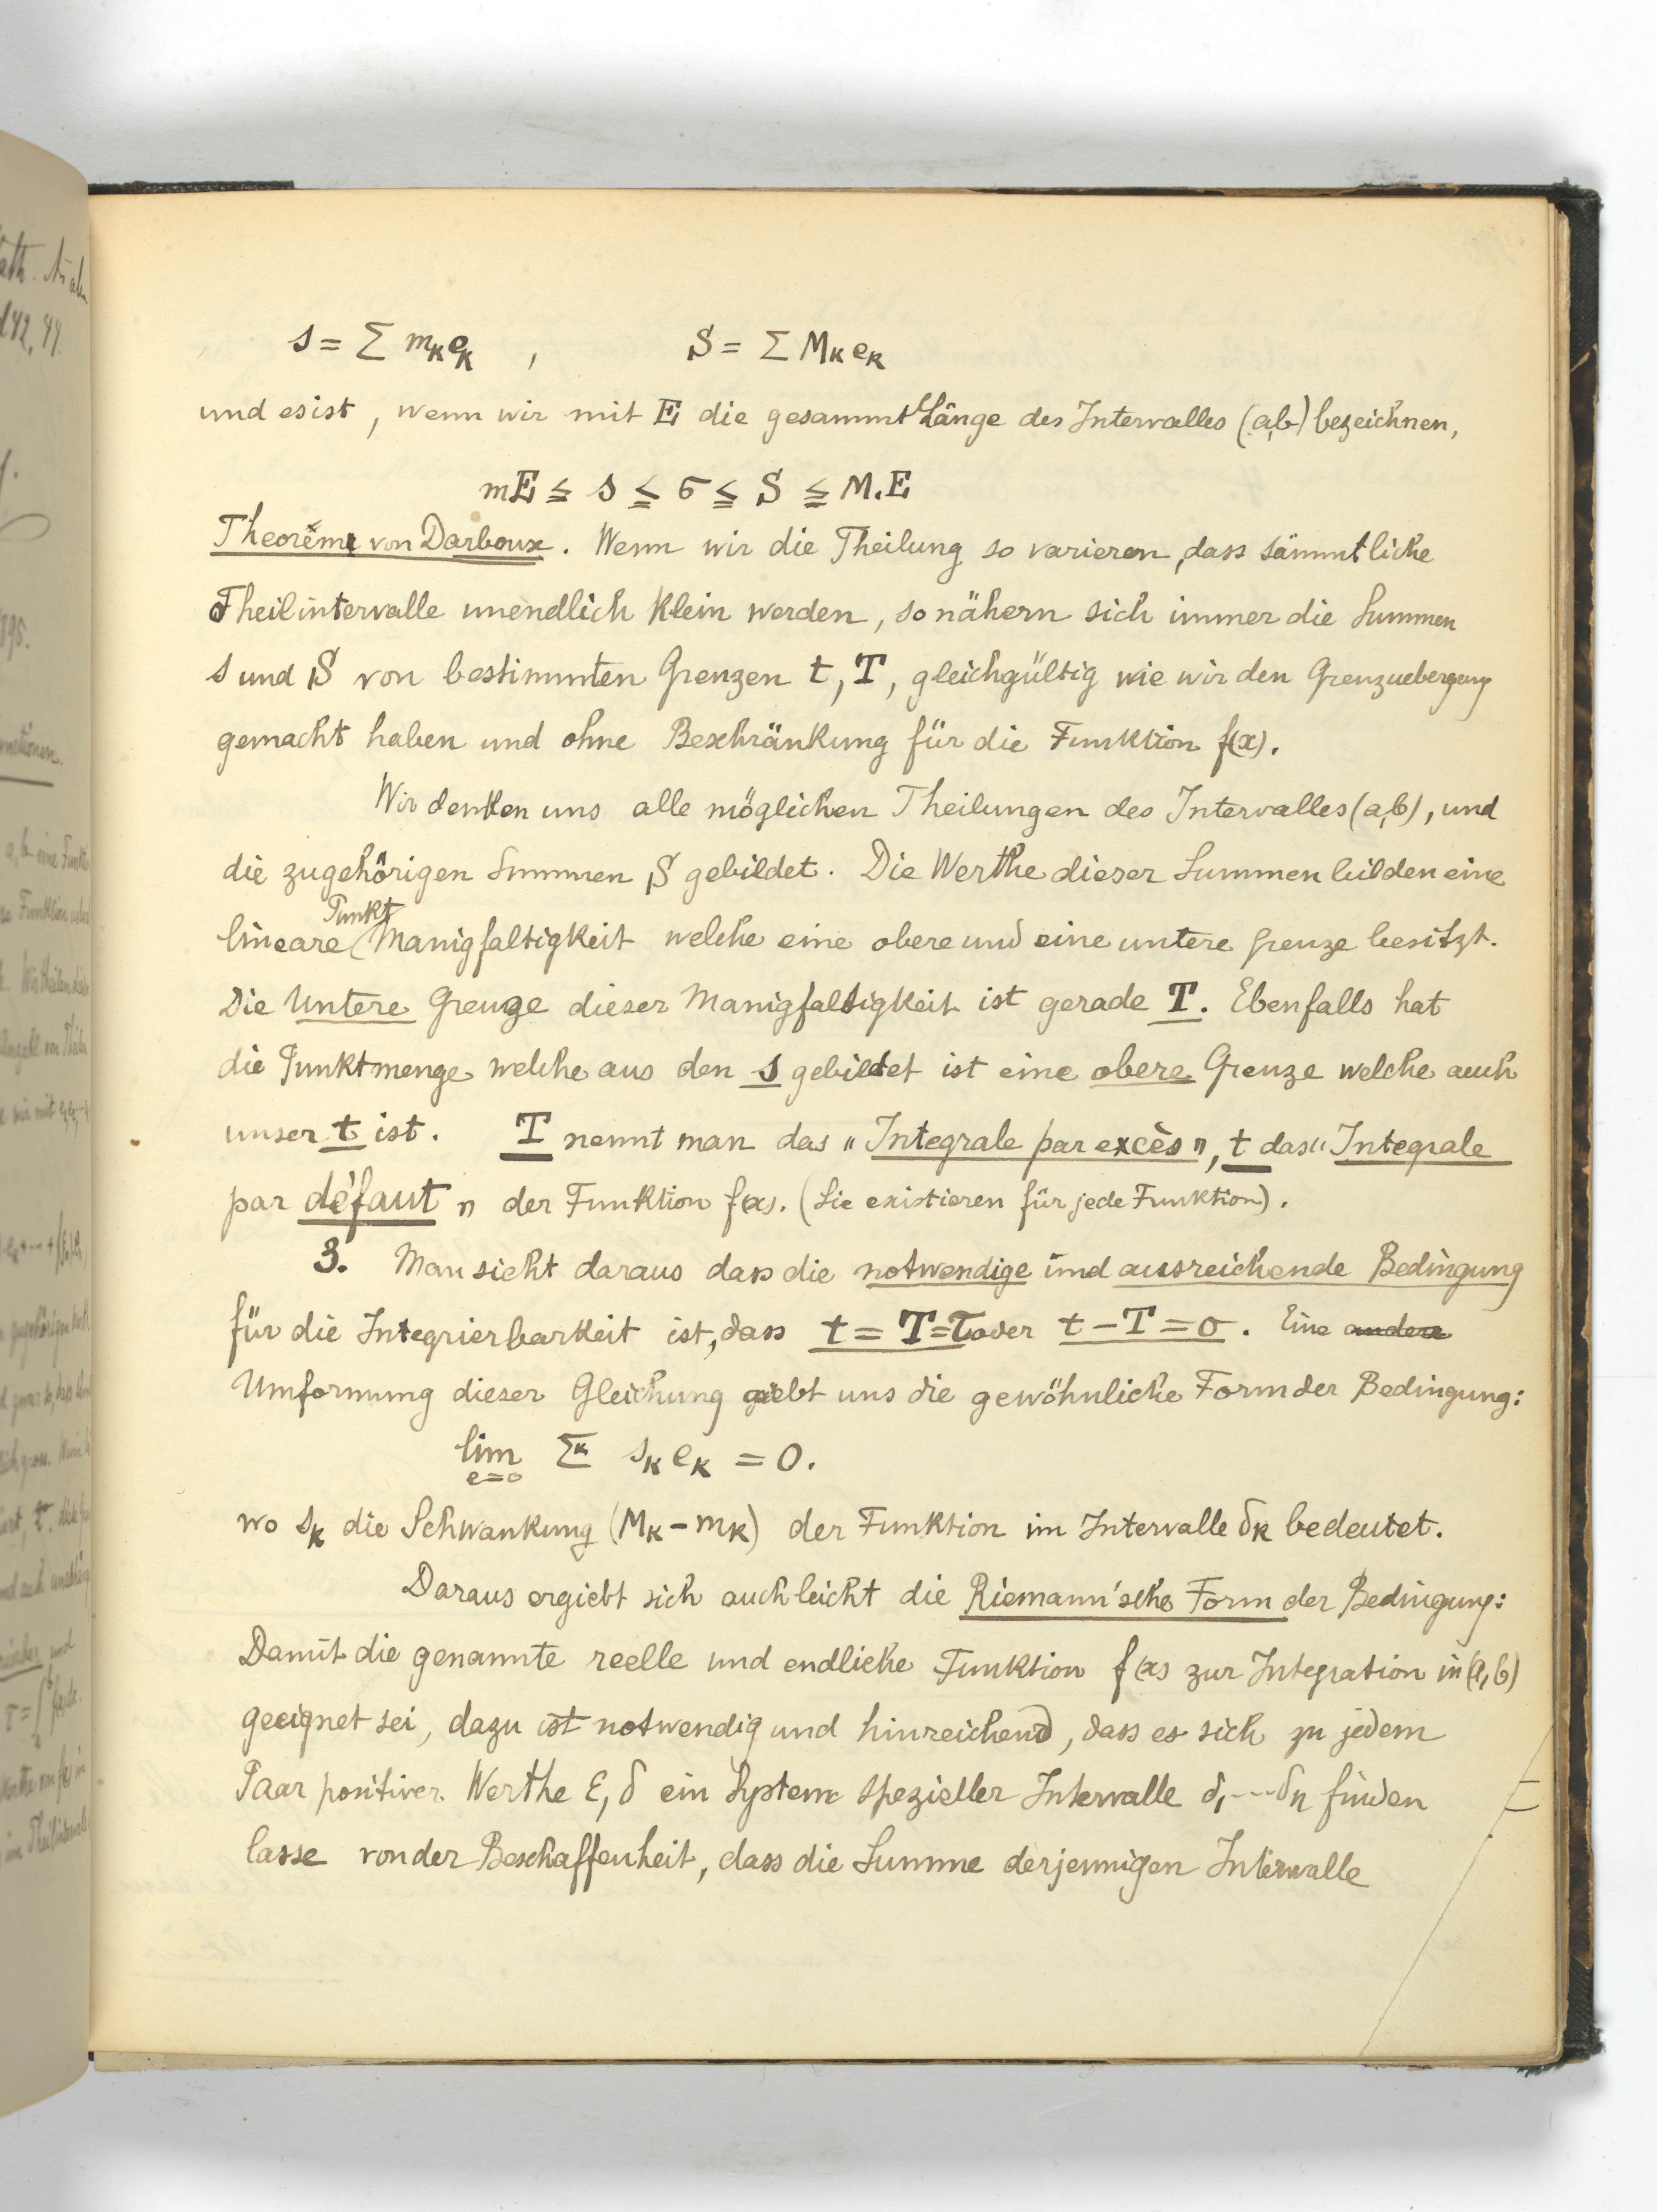 s = Σ mₖeₖ , S = Σ Mₖeₖ
und es ist, wenn wir mit E die gesammt Länge des Intervalles (a,b) bezeichnen,
mE ≦ s ≦ σ ≦ S ≦ M.E
Theorème von Darboux. Wenn wir die Theilung so varieren, dass sämmtliche
Theilintervalle unendlich klein werden, so nähern sich immer die Summen
s und S von bestimmten Grenzen t, T, gleichgültig wie wir den Grenzuebergang
gemacht haben und ohne Beschränkung für die Funktion f(x).
Wir denken uns alle möglichen Theilungen des Intervalles (a,b), und
die zugehörigen Summen S gebildet. Die Werthe dieser Summen bilden eine
Punkt
lineare Manigfaltigkeit welche eine obere und eine untere Grenze besitzt.
Die Untere Grenze dieser Manigfaltigkeit ist gerade T. Ebenfalls hat
die Punktmenge welche aus den s gebildet ist eine obere Grenze welche auch
unser t ist. T nennt man das „Integrale par excès", t das „Integrale
par défaut" der Funktion f(x). (Sie existieren für jede Funktion).
3. Man sieht daraus dass die notwendige und ausreichende Bedingung
für die Integrierbarkeit ist, dass t = T = τ oder t – T = 0. Eine andere
Umformung dieser Gleichung giebt uns die gewöhnliche Form der Bedingung:
lim Σᵏ sₖ eₖ = 0.
e=0
wo sₖ die Schwankung (Mₖ – mₖ) der Funktion im Intervalle δₖ bedeutet.
Daraus ergiebt sich auch leicht die Riemann'sche Form der Bedingung:
Damit die genannte reelle und endliche Funktion f(x) zur Integration in (a,b)
geeignet sei, dazu ist notwendig und hinreichend, dass es sich zu jedem
Paar positiver Werthe ε, δ ein System spezieller Intervalle δ₁ ... δₙ finden
lasse von der Beschaffenheit, dass die Summe derjennigen Intervalle